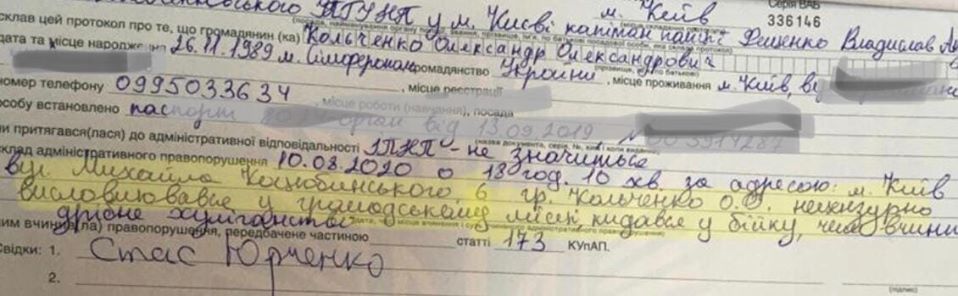 ПГУНП у м. Києві м. Київ Серія ВАБ
клав цей протокол про те, що громадянин (ка) капітан поліції Фещенко Владислав 336146
Кольченко Олександр Олександрович
дата та місце народження 26.11.1989 м. Сімферополь громадянство України, місце проживання м. Київ, ву
номер телефону 0995033634, місце реєстрації
, місце роботи (навчання), посада
особу встановлено паспорт орган від 13.09.2019
и притягався(лася) до адміністративної відповідальності ІПНП - не значиться
клад адміністративного правопорушення 10.08.2020 о 18 год. 10 хв. за адресою: м. Київ
вул. Михайла Коцюбинського 6 гр. Кольченко О.О. нецензурно
висловлювався у громадському місці, кидався у бійку, чим вчини
дрібне хуліганство
им вчинив(ла) правопорушення, передбачене частиною статті 173 КУпАП.
Свідки: 1. Стас Юрченко
2.
(підпис)